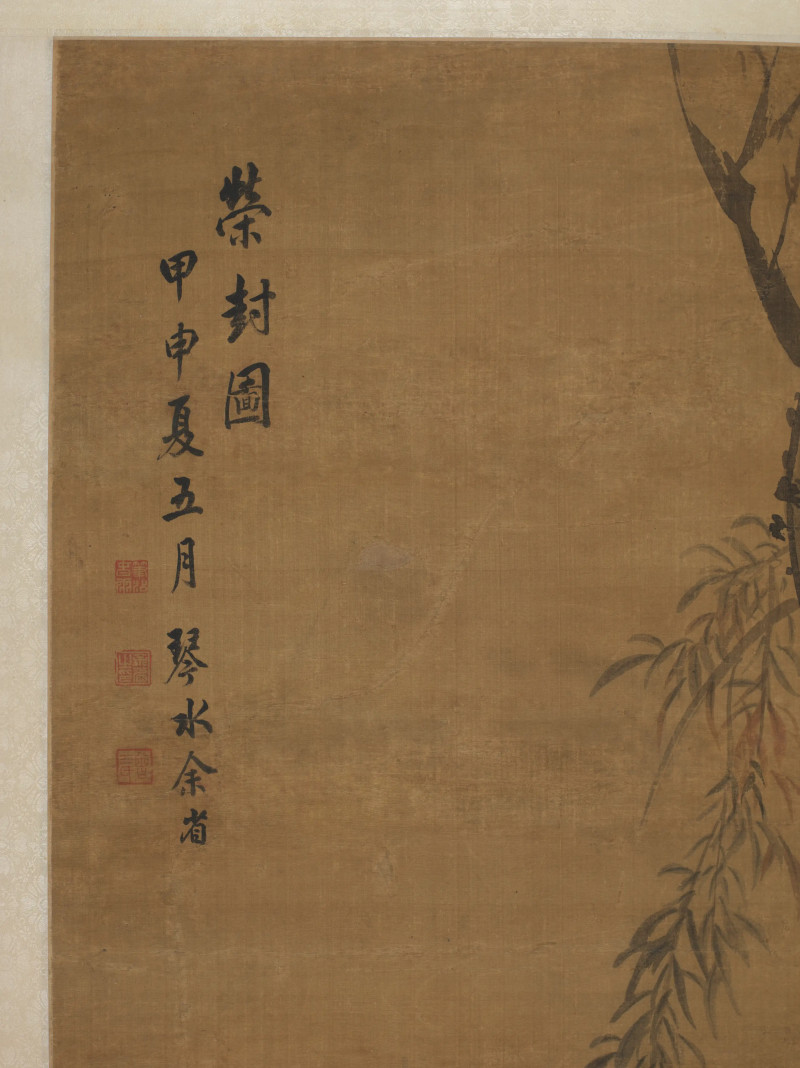 榮封圖
甲申夏五月琴水余省